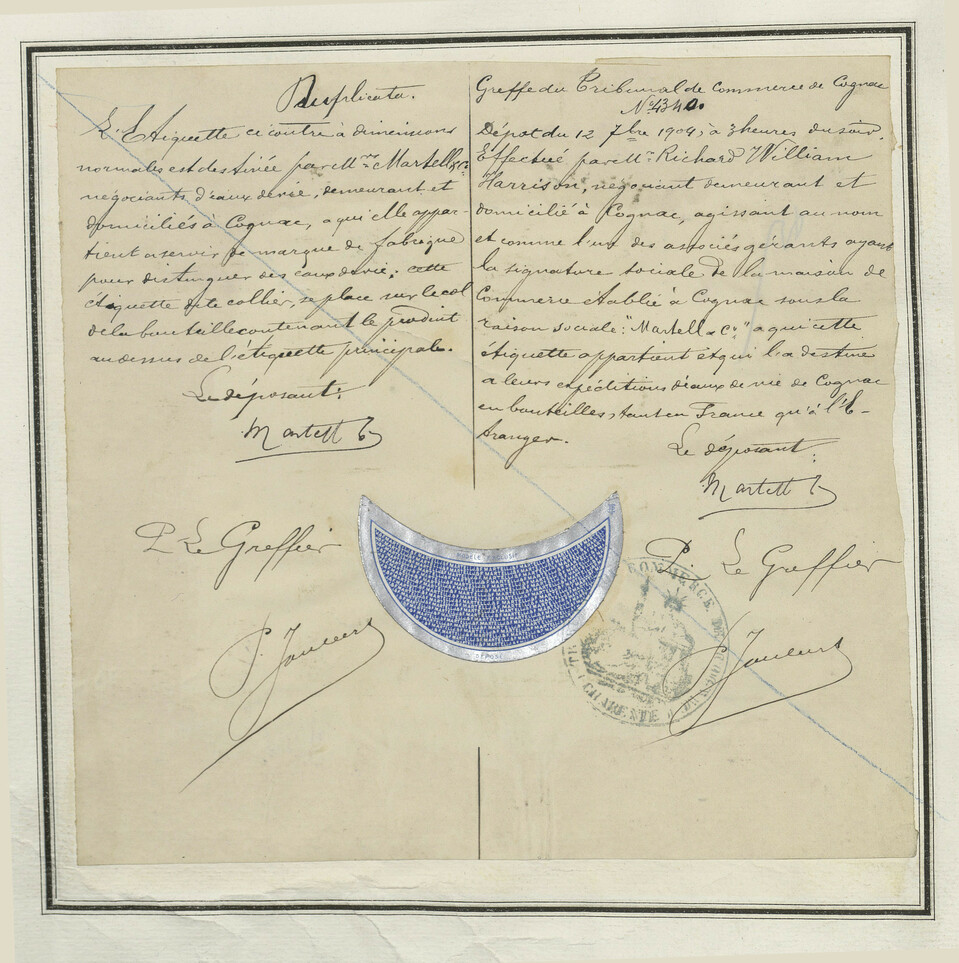 Duplicata.
L'Etiquette ci contre à dimensions
normales est destinée par MM. Martell & Co
négociants d'eaux de vie, demeurant et
domiciliés à Cognac, a qui elle appar-
tient a servir de marque de fabrique
pour distinguer des eaux de vie; cette
étiquette dite collier, se place sur le col
de la bouteille contenant le produit
au dessus de l'étiquette principale.
Le déposant:
Martell Co
P. Le Greffier
Greffe du Tribunal de Commerce de Cognac
No 4340.
Dépot du 12 7bre 1904, à 3 heures du soir.
Effectué par Mr. Richard William
Harrison, négociant demeurant et
domicilié à Cognac, agissant au nom
et comme l'un des associés gérants ayant
la signature sociale de la maison de
Commerce établie à Cognac sous la
raison sociale: "Martell & Co" a qui cette
étiquette appartient et qui l'a destine
a leurs expéditions d'eaux de vie de Cognac
en bouteilles, tant en France qu'à l'E-
tranger.
Le déposant:
Martell Co
P. Le Greffier
MODÈLE EXCLUSIF
DÉPOSÉ
COMMERCE
CHARENTE